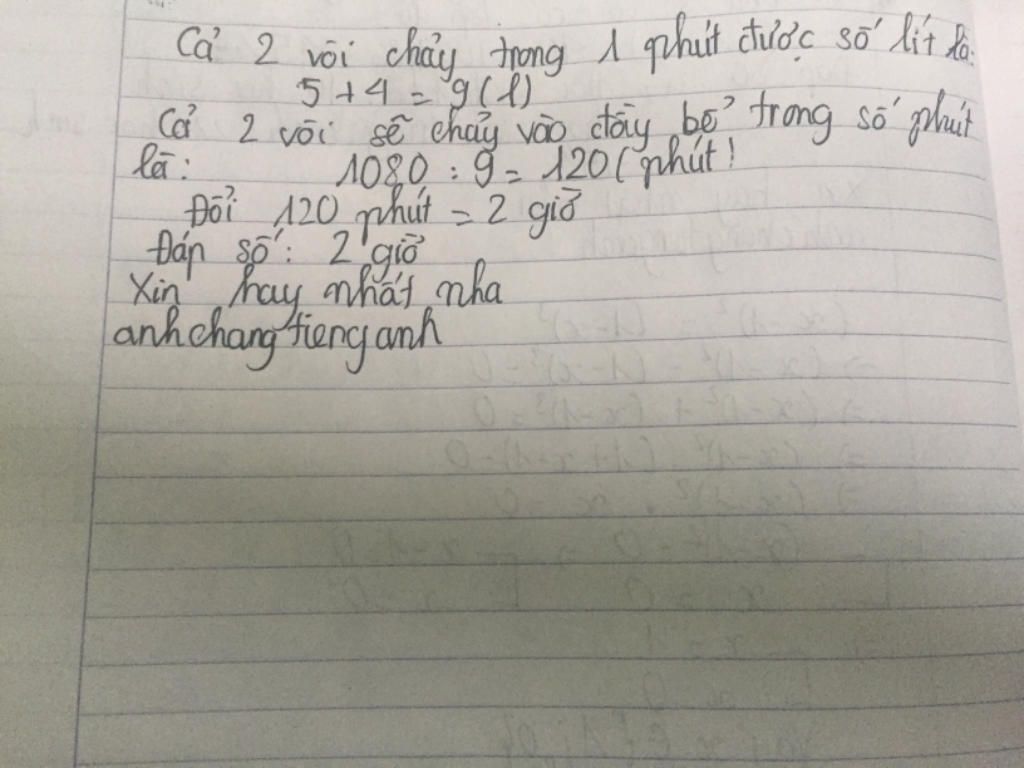 Cả 2 vòi chảy trong 1 phút được số lít là:
5 + 4 = 9 (l)
Cả 2 vòi sẽ chảy vào đầy bể trong số phút
là: 1080 : 9 = 120 (phút!
Đổi 120 phút = 2 giờ
Đáp số: 2 giờ
Xin hay nhất nha
anhchangtienganh